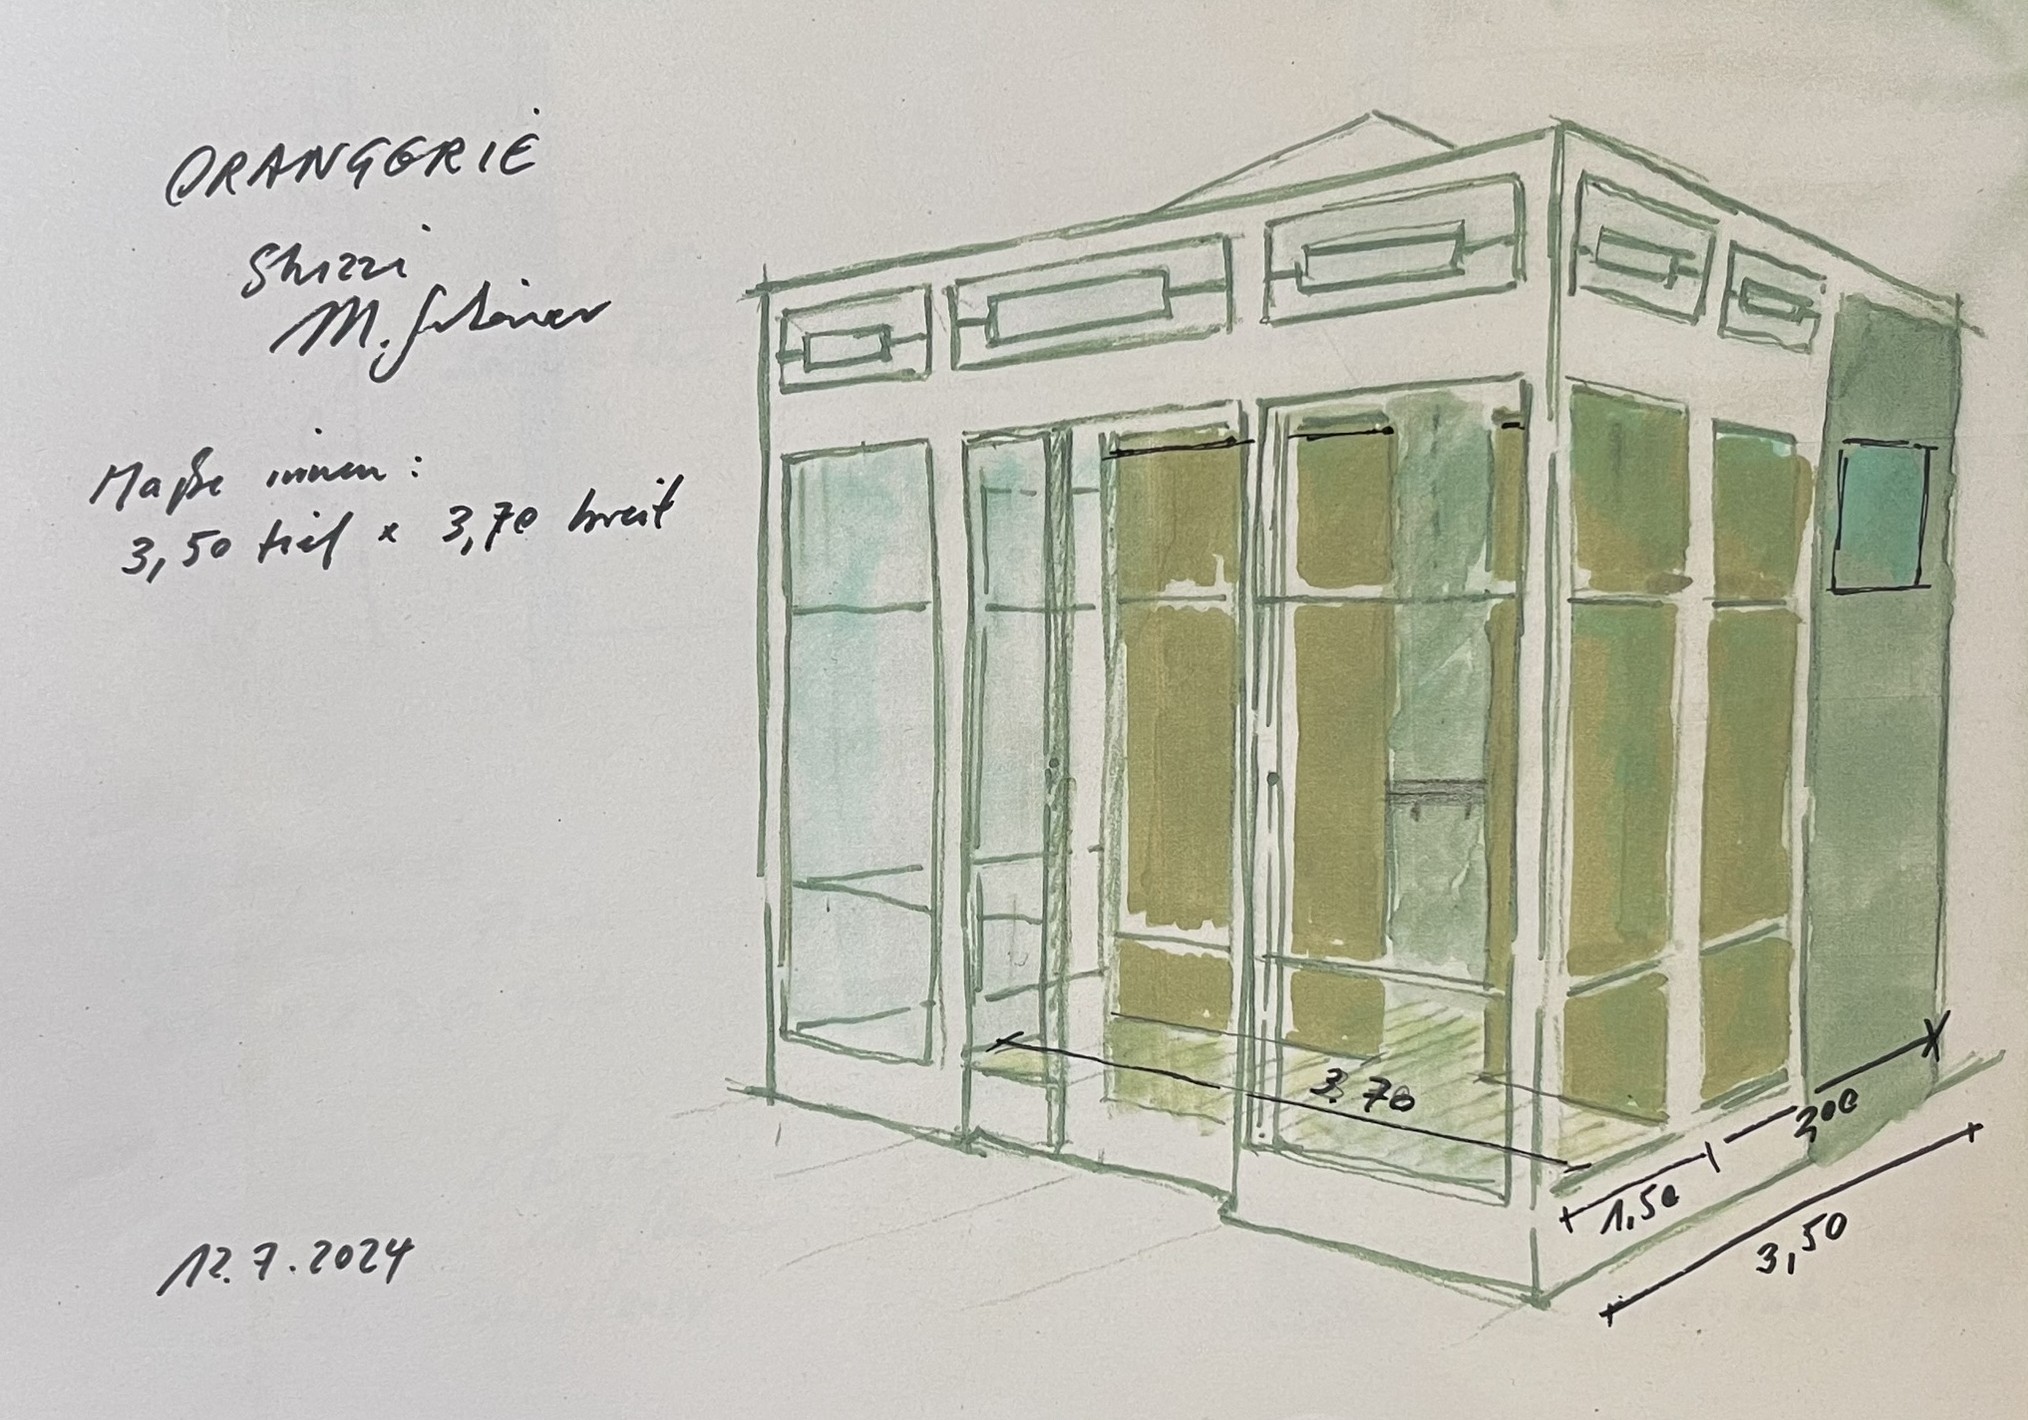 ORANGERIE
Skizzi
M.
Maße innen:
3,50 tief x 3,70 breit
3.70
200
1,50
3,50
12.7.2024